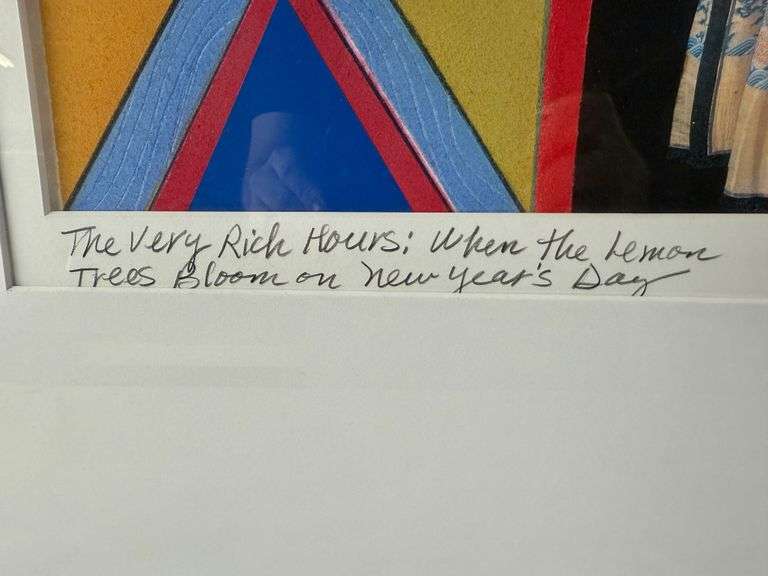 The Very Rich Hours: When the Lemon
Trees Bloom on New Year's Day